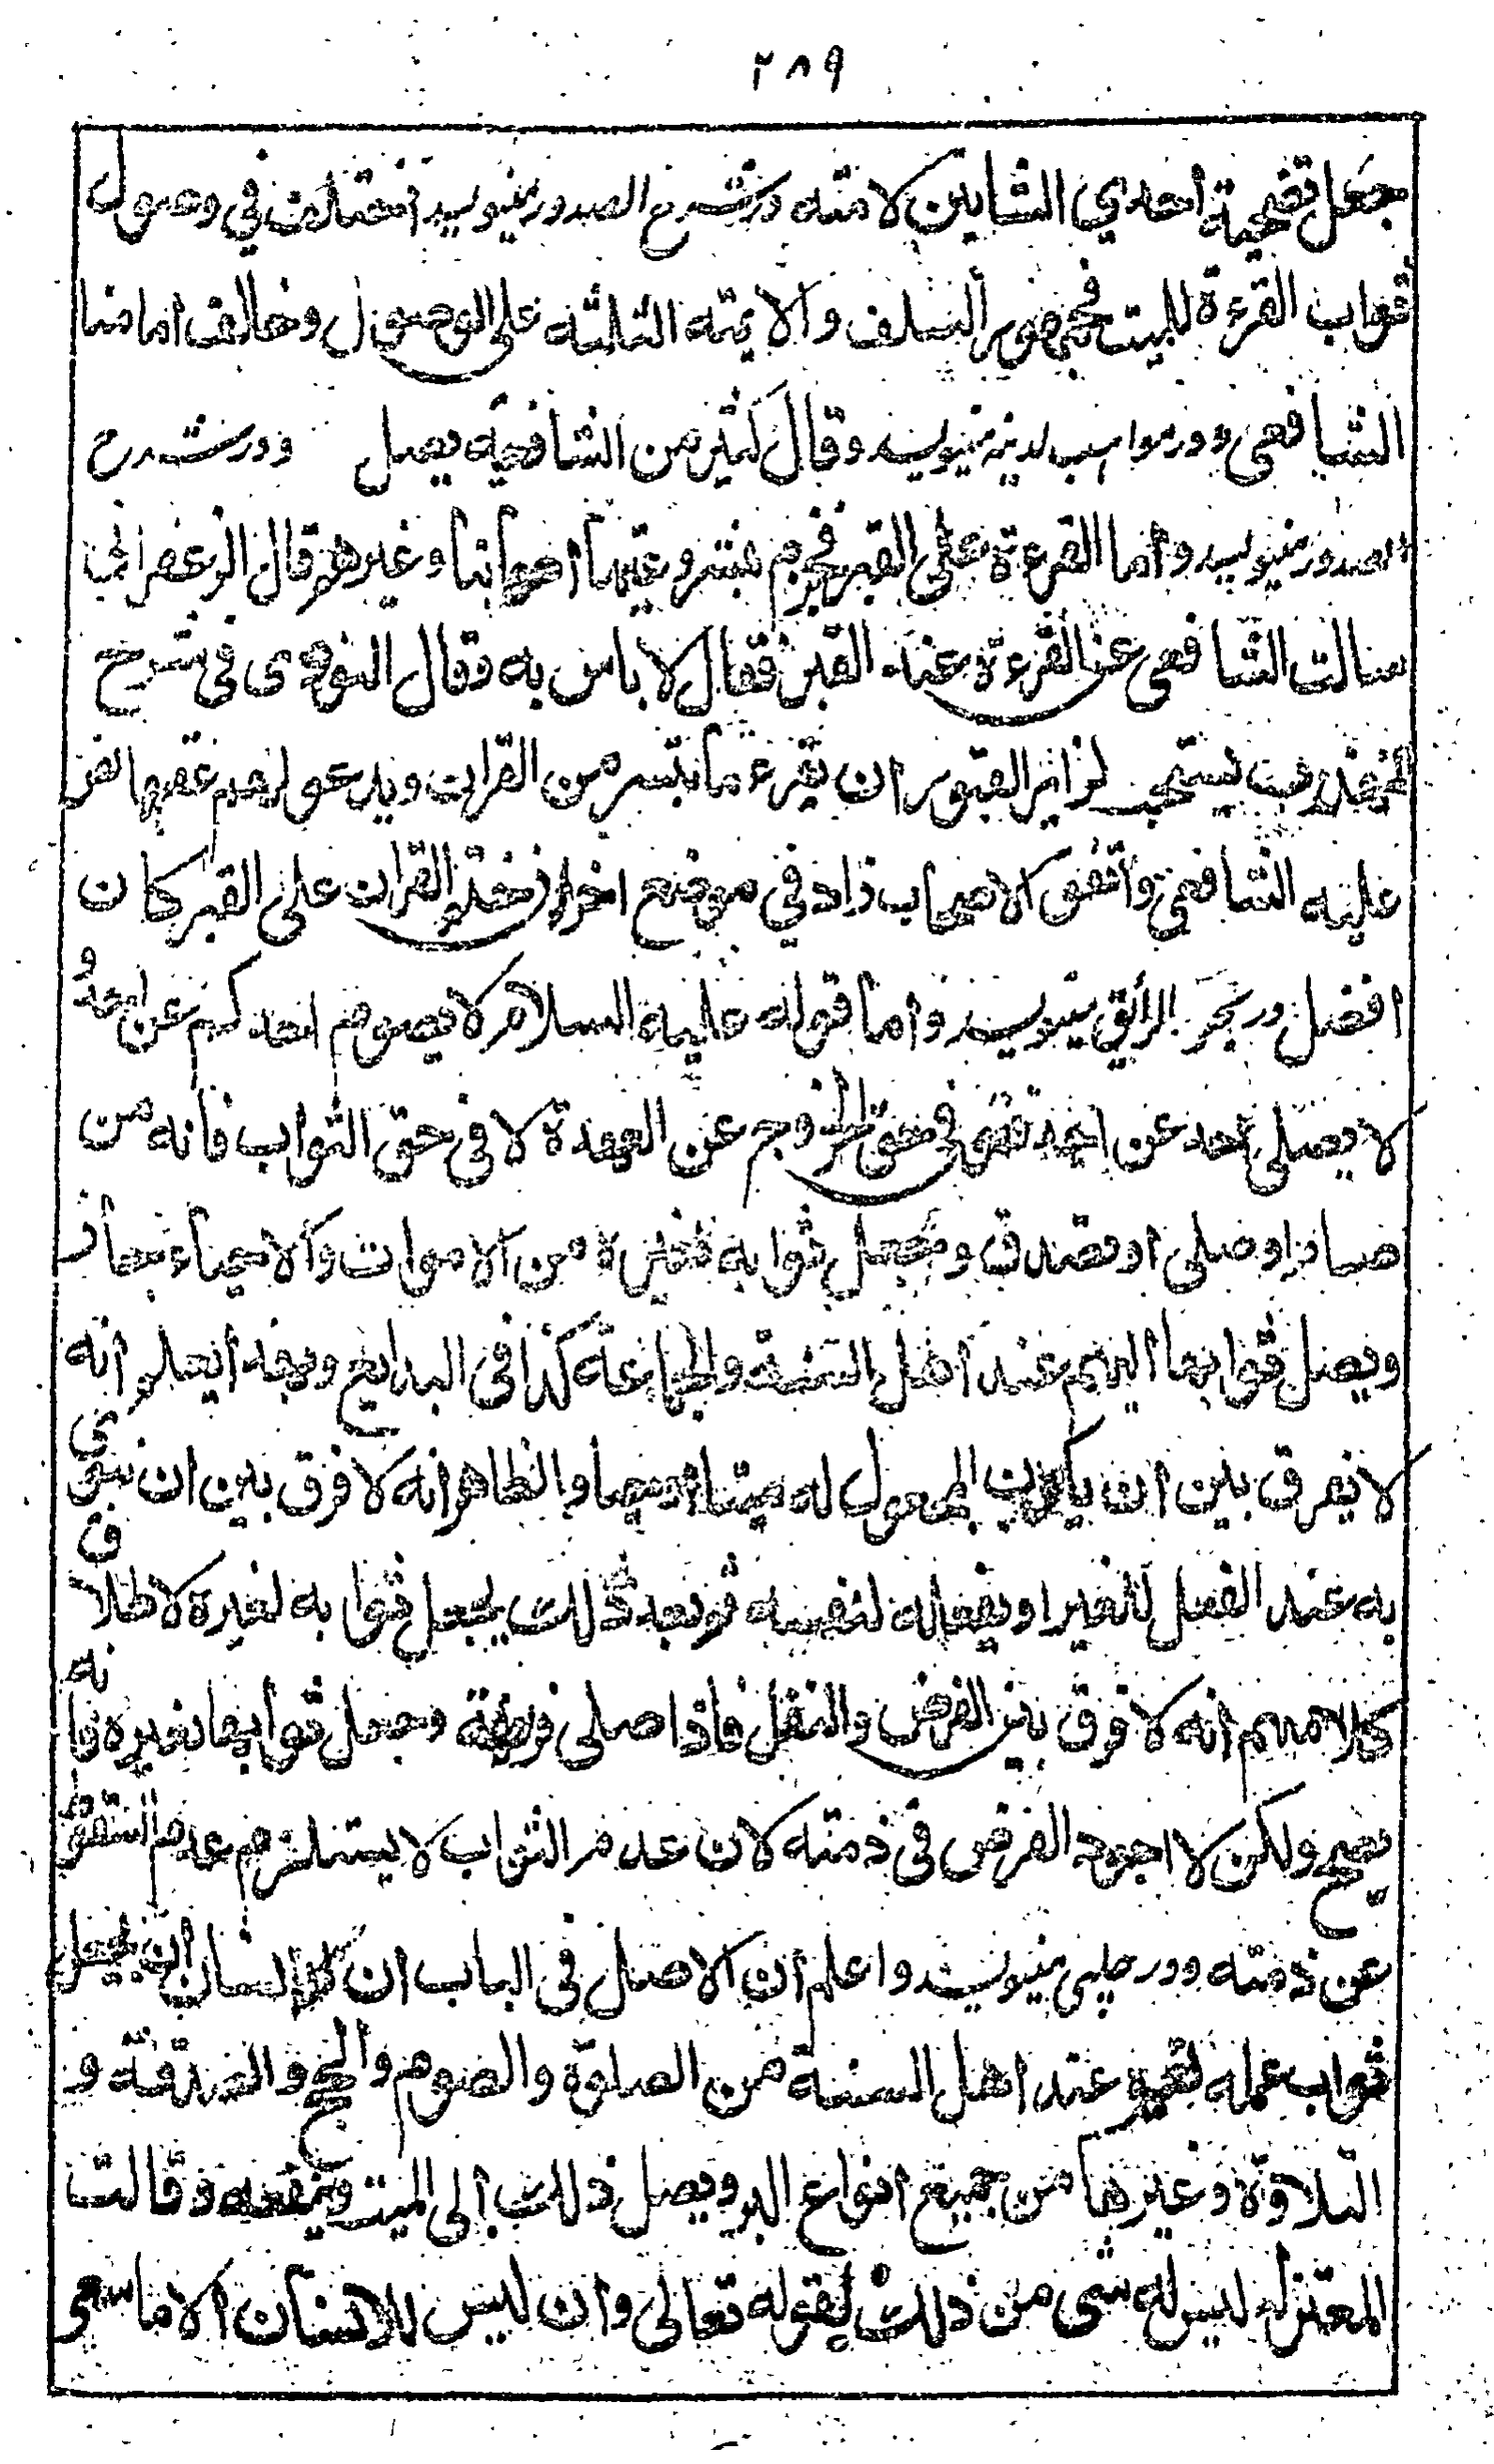 ۲۸۹
جعل تضحیة احدی الشاتین لامته ودر شرح الصدور مینویسد اختلف فی وصول
ثواب القرءة للمیت فجمهور السلف والایمّه الثلثه علی الوصول وخالف امامنا
الشافعی ودر مواهب لدنیه مینویسد وقال کثیر من الشافعیه یصل ودر شرح
الصدور مینویسد واما القرءة علی القبر فجزم بمشروعیتها اصحابنا وغیرهم قال الزعفرانی
سالت الشافعی عن القرءة عند القبر فقال لا باس به وقال النووی فی شرح
المهذب یستحب لزایر القبور ان یقرء ما تیسر من القران ویدعو لهم عقبها نص
علیه الشافعی واتفق الاصحاب زاد فی موضع اخر ان ختم القران علی القبر کان
افضل ودر بحر الرائق مینویسد واما قوله علیه السلام لا یصوم احدکم عن احدٍ و
لا یصلی احد عن احد فهو فی حق الخروج عن العهدة لا فی حق الثواب فانه من
صام او صلی او تصدق وجعل ثوابه لغیره من الاموات والاحیاء جاز
ویصل ثوابها الیهم عند اهل السنة والجماعة کذا فی البدایع وبهذا یعلم انه
لا فرق بین ان یکون المجعول له میتا او حیا والظاهر انه لا فرق بین ان ینوی
به عند الفعل للغیر او یفعله لنفسه ثم بعد ذلک یجعل ثوابه لغیره لاطلاق
کلامهم انه لا فرق بین الفرض والنفل فاذا صلی فریضة وجعل ثوابها لغیره فانه
یصح ولکن لا یعود الفرض فی ذمته لان عدم الثواب لا یستلزم عدم السقوط
عن ذمته ودر حلبی مینویسد واعلم ان الاصل فی الباب ان للانسان ان یجعل
ثواب عمله لغیره عند اهل السنة من الصلوة والصوم والحج والصدقه و
التلاوة وغیرها من جمیع انواع البر ویصل ذلک الی المیت وینفعه وقالت
المعتزله لیس له شی من ذلک لقوله تعالی وان لیس للانسان الا ما سعی